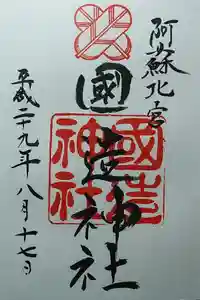 阿蘇北宮
國造神社
國造神社
平成二十九年八月十七日